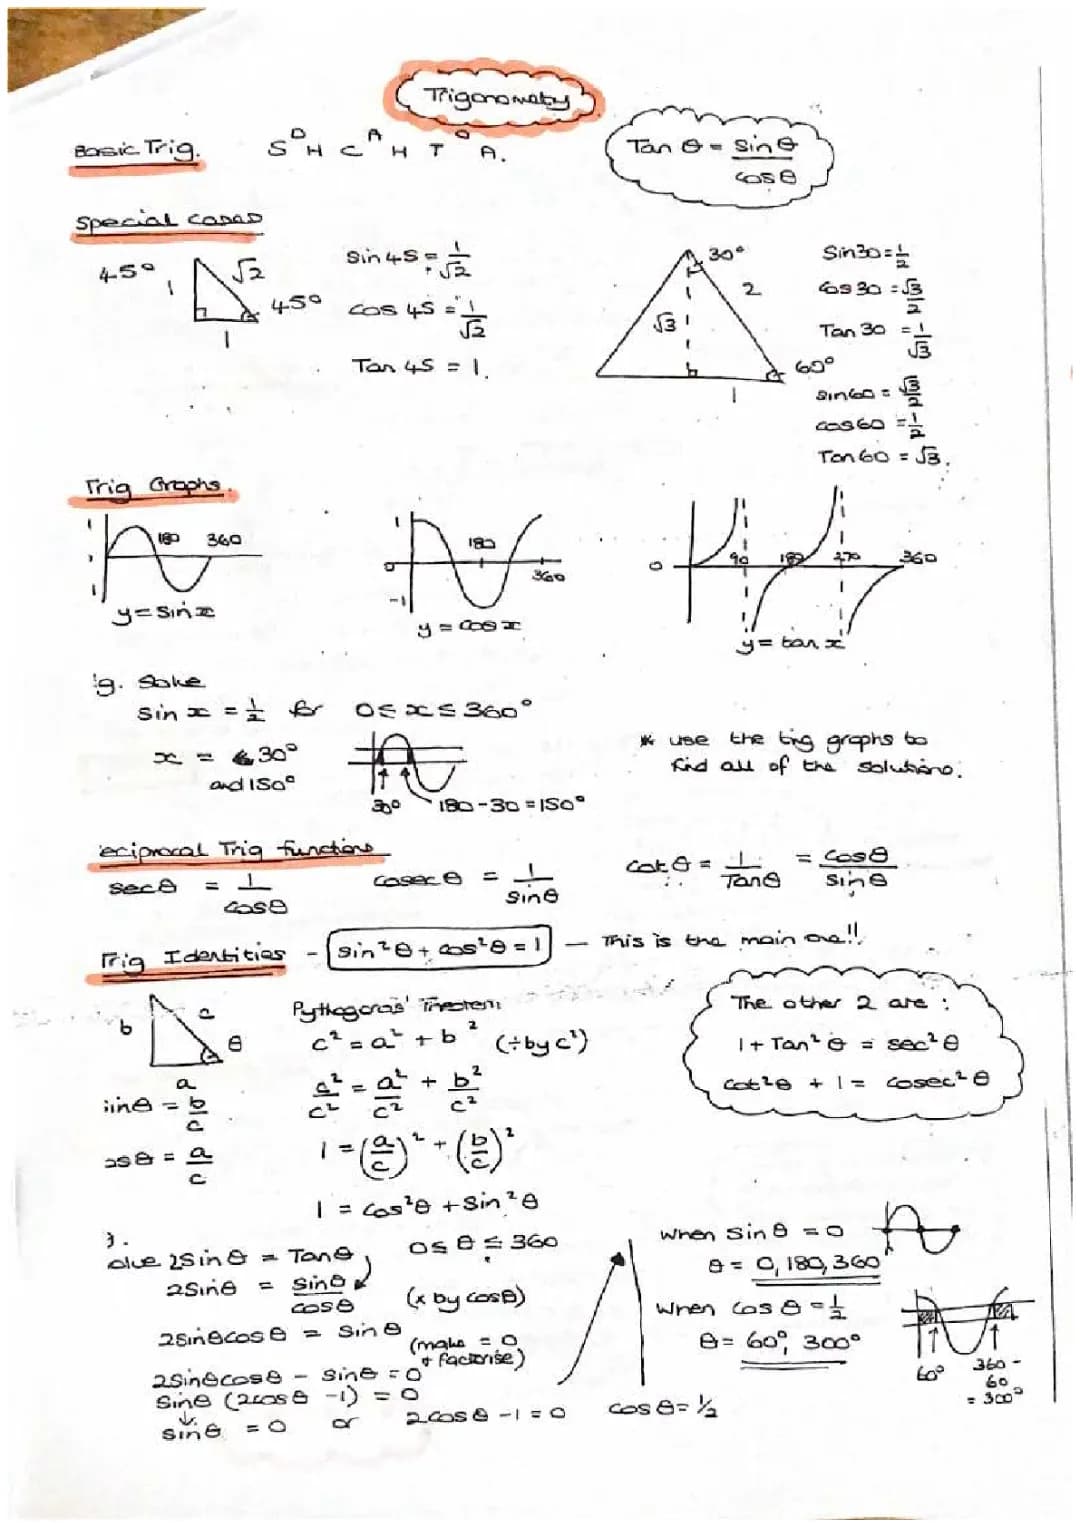 Trigonometry
Basic Trig. S O H C A H T O A.
Tan θ = sin θ / cos θ
Special cases
45° 1 √2 45° 1
sin 45 = 1/√2
cos 45 = 1/√2
Tan 45 = 1.
30° 2 √3 60° 1
Sin 30 = 1/2
cos 30 = √3/2
Tan 30 = 1/√3
sin 60 = √3/2
cos 60 = 1/2
Tan 60 = √3.
Trig Graphs.
1 180 360 1
y = sin x
1 0 180 360 -1
y = cos x
0 90 180 270 360
y = tan x
g. Solve
sin x = 1/2 for 0 ≤ x ≤ 360°
x = 30°
and 150°
30° 180-30 = 150°
* use the trig graphs to
find all of the solutions.
eciprocal Trig functions
sec θ = 1/cos θ
cosec θ = 1/sin θ
cot θ = 1/Tan θ = cos θ/sin θ
Trig Identities - sin²θ + cos²θ = 1 — This is the main one!!
b c θ a
Pythagoras' Theorem
c² = a² + b² (÷ by c²)
c²/c² = a²/c² + b²/c²
1 = (a/c)² + (b/c)²
1 = cos²θ + sin²θ
inθ = b/c
osθ = a/c
The other 2 are :
1 + Tan²θ = sec²θ
cot²θ + 1 = cosec²θ
olve 2sin θ = Tan θ, 0 ≤ θ ≤ 360
2sin θ = sin θ/cos θ (x by cos θ)
2sin θ cos θ = sin θ (make = 0
+ factorise)
2sin θ cos θ - sin θ = 0
sin θ (2cos θ - 1) = 0
sin θ = 0 or 2cos θ - 1 = 0 cos θ = 1/2
when sin θ = 0
θ = 0, 180, 360
when cos θ = 1/2
θ = 60°, 300°
60° 360 -
60
= 300°